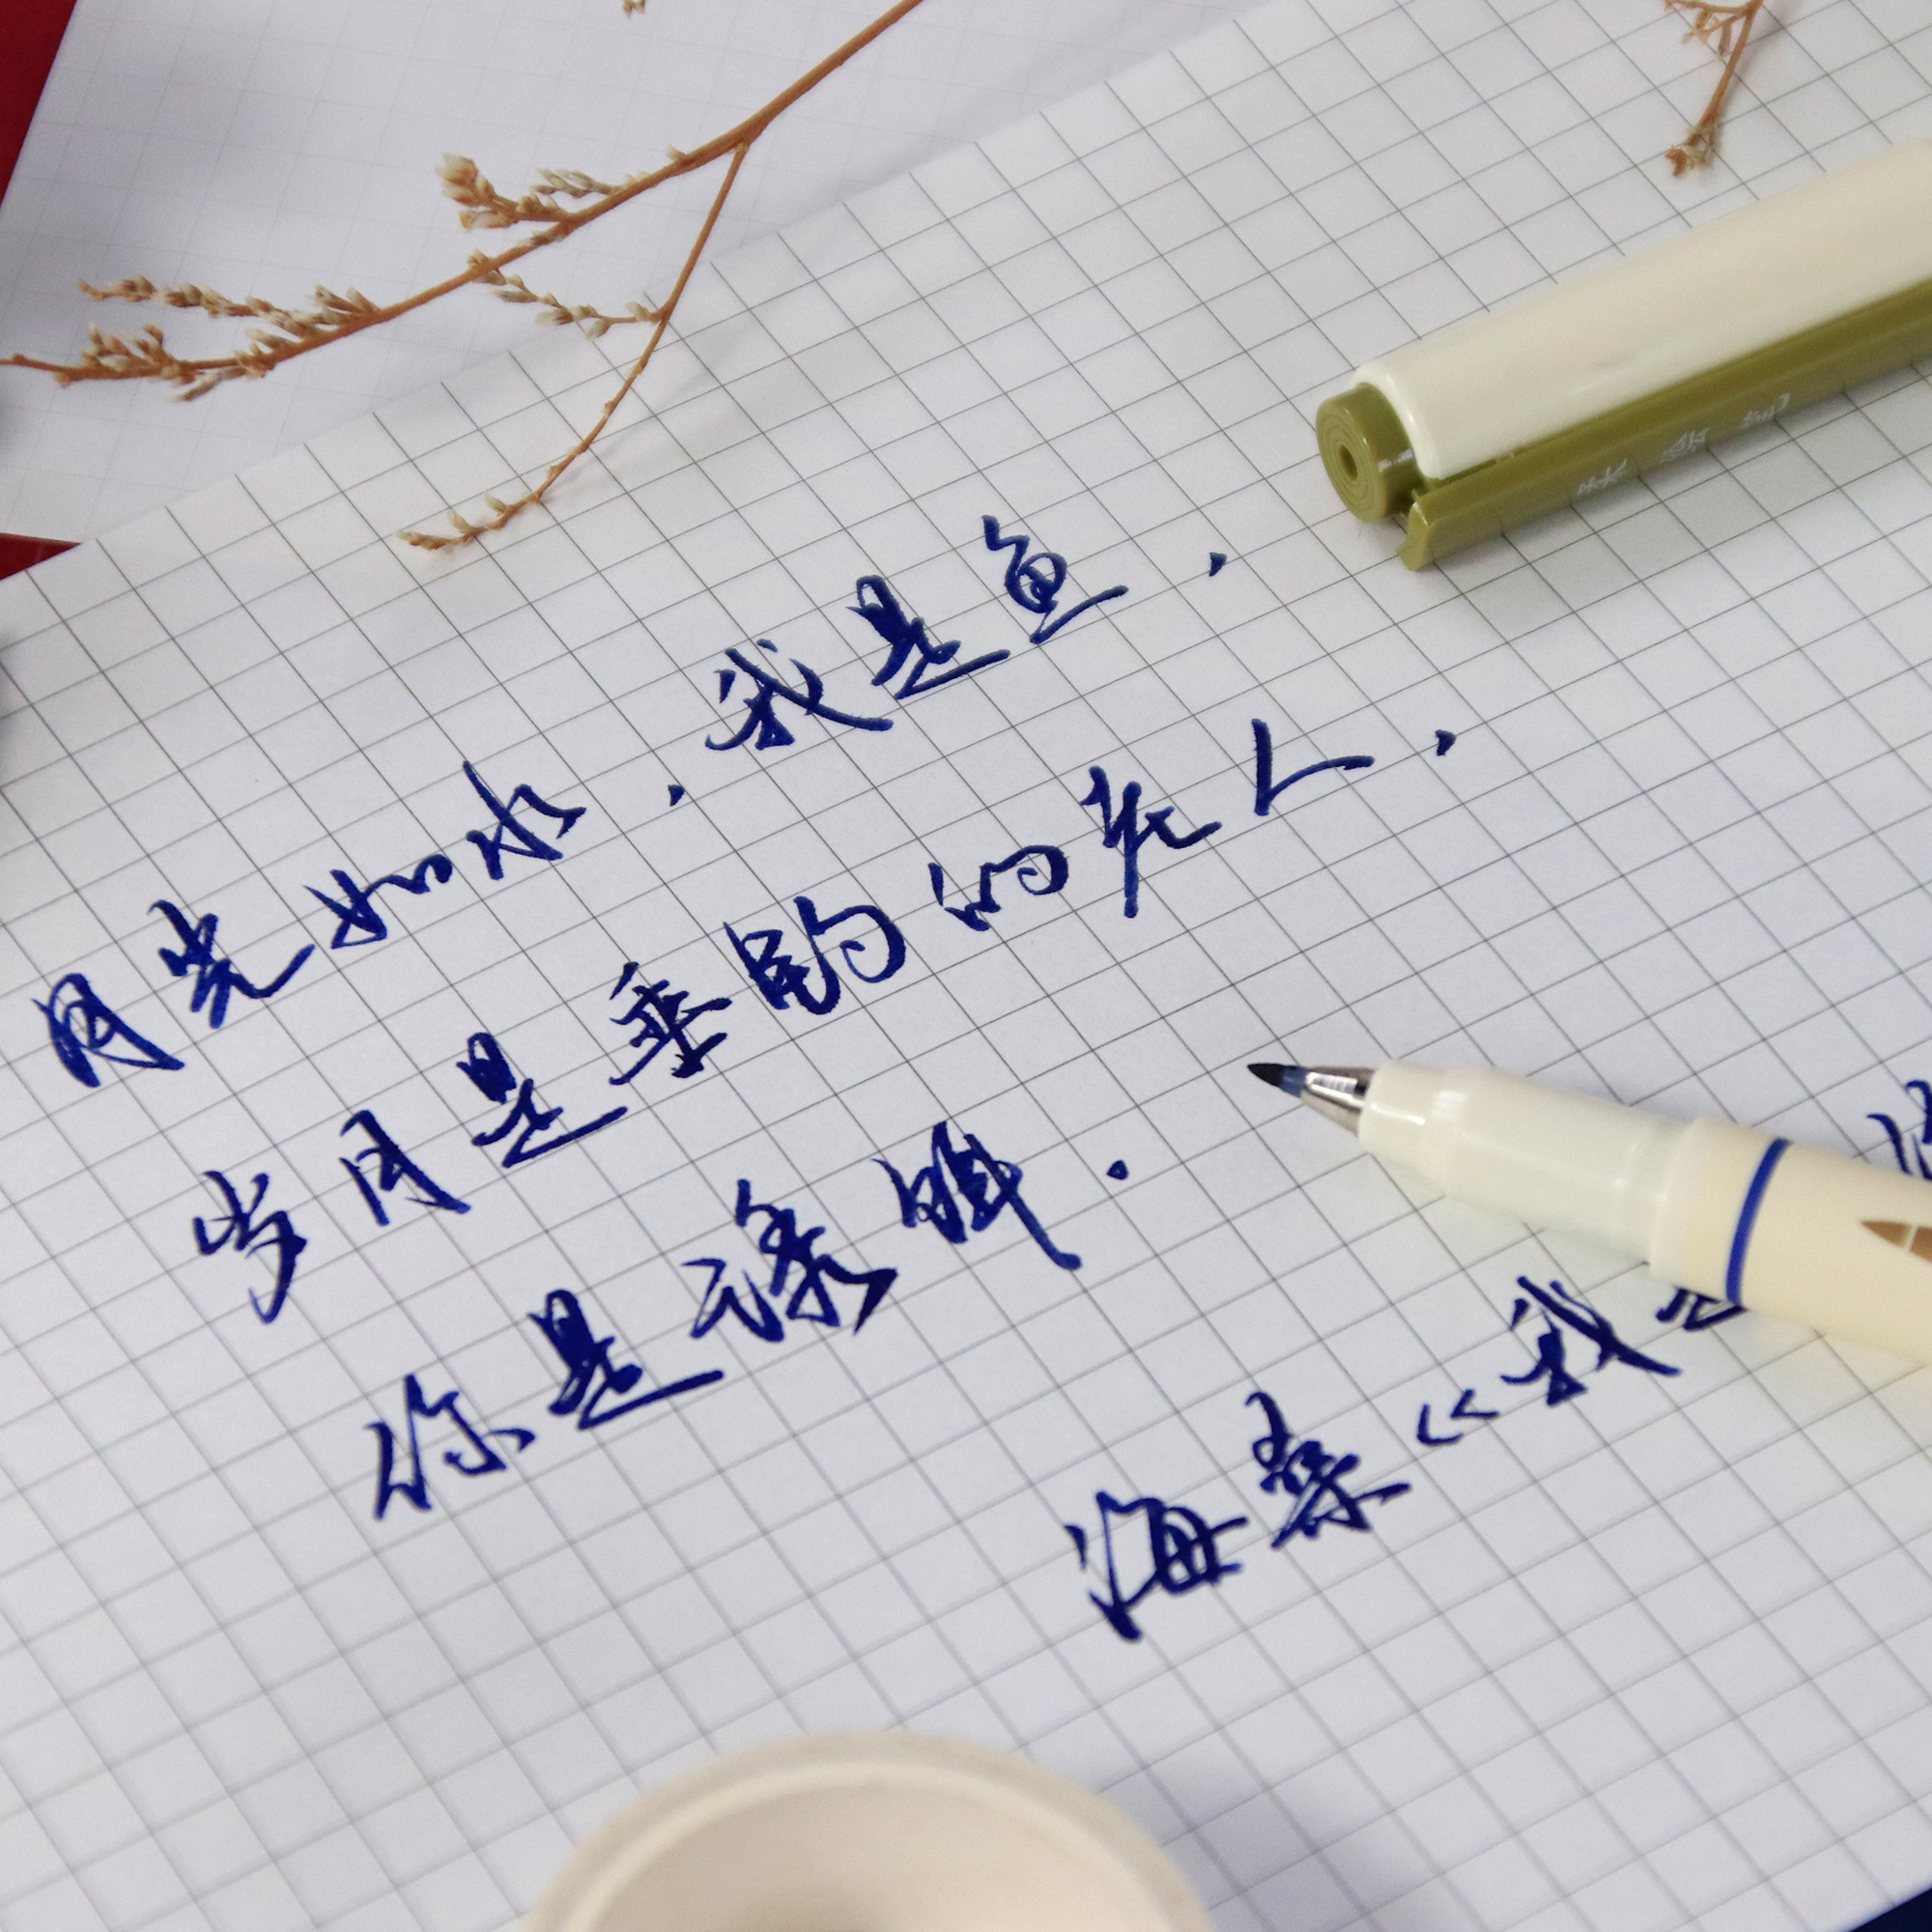 月光如水，我是鱼，
岁月是垂钓的老人，
你是诱饵。
海桑《我是